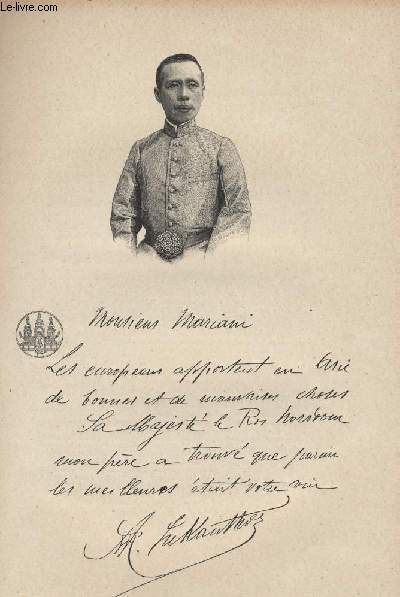 Le-livre.com
Monsieur Mariani
Les européens apportent en Asie
de bonnes et de mauvaises choses
Sa Majesté le Roi Norodom
mon père a trouvé que parmi
les meilleures était votre vin